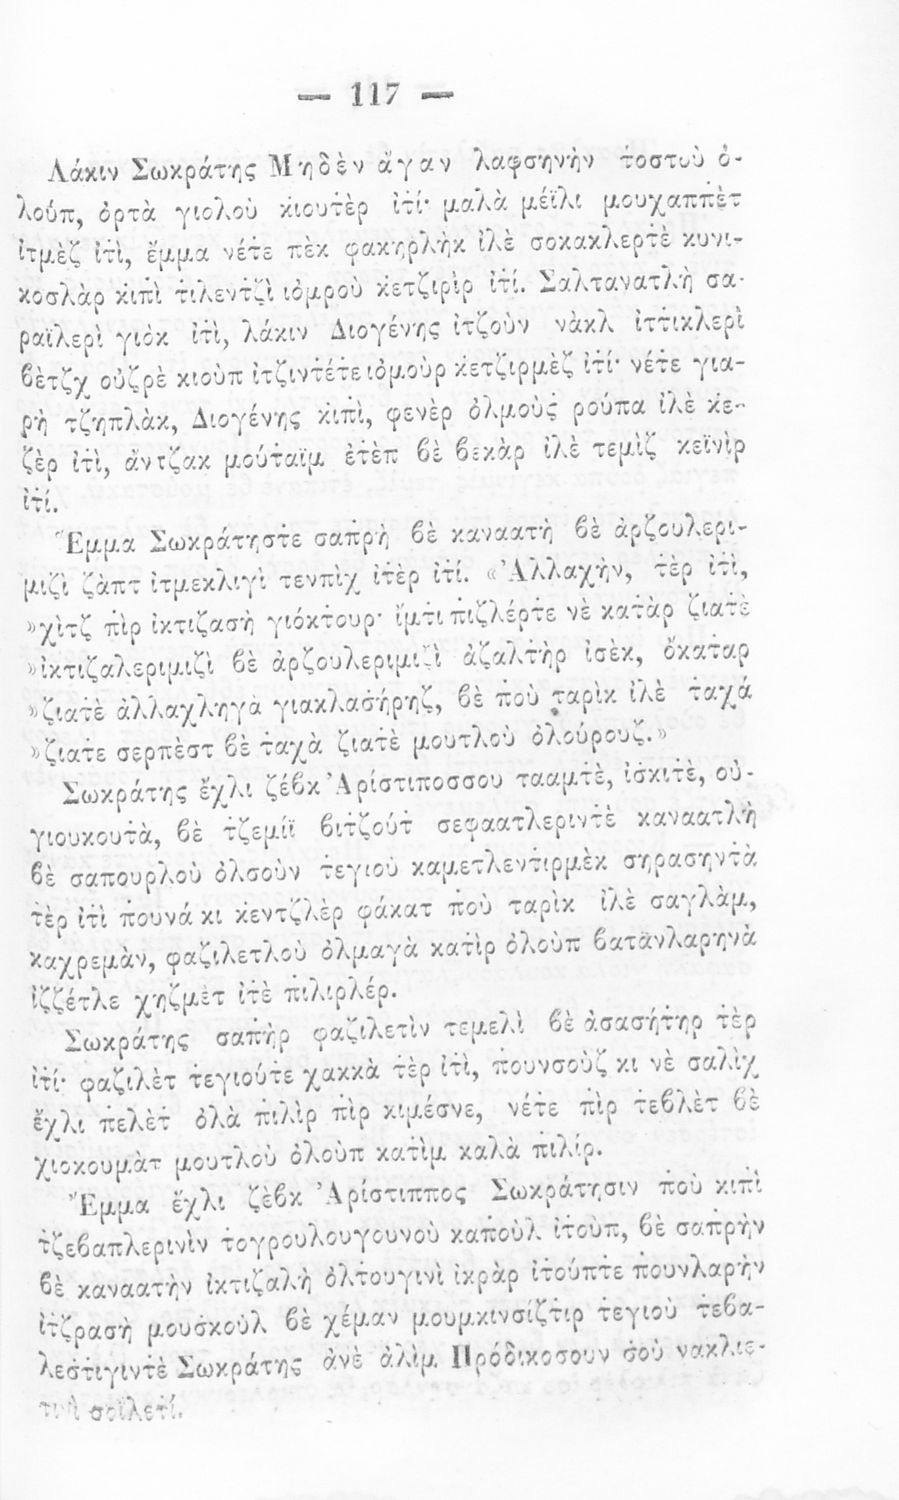 — 117 —
Λάκιν Σωκράτης Μηδὲν ἄγαν λαφσηνὴν τ̇οστοὺ ὀ-
λούπ, ὀρτὰ γιολοὺ κ̇ιουτὲρ ἰτ̇ί· μαλὰ μέϊλι μουχαππ̇ὲτ
ἰτμὲζ ἰτ̇ὶ, ἔμμα νέτ̇ε πὲκ φακηρλὴκ ἰλὲ σοκακλερτ̇ὲ κυνι-
κοσλὰρ κ̇ιπ̇ὶ τ̇ιλεντζ̇ὶ ιὀμροὺ κ̇ετζ̇ιρὶρ ἰτ̇ί. Σαλτανατλὴ σα-
ραϊλερὶ γιὸκ ἰτ̇ὶ, λάκιν Διογένης ἰτζ̇οὺν νὰκλ ἰτ̇τ̇ικλερὶ
βὲτζχ οὐζρὲ κιοὺπ ἰτζιντ̇έτ̇ε ιὀμοὺρ κ̇ετζ̇ιρμὲζ ἰτ̇ί· νέτ̇ε για-
ρὴ τζηπλὰκ, Διογένης κ̇ιπ̇ὶ, φενὲρ ὀλμοὺς̇ ρούπα ἰλὲ κ̇ε-
ζὲρ ἰτ̇ὶ, ἄντζ̇ακ μούταϊμ ἐτ̇ὲπ βὲ βεκὰρ ἰλὲ τεμὶζ κεϊνὶρ
ἰτ̇ί.
Ἔμμα Σωκράτηστ̇ε σαπρὴ βὲ καναατὴ βὲ ἀρζουλερι-
μιζὶ ζὰπτ ἰτμεκλιγὶ τενπ̇ὶχ ἰτ̇ὲρ ἰτ̇ί. «Ἀλλαχὴν, τ̇ὲρ ἰτ̇ὶ,
»χὶτζ π̇ὶρ ἰκτιζασὴ γιόκτ̇ουρ· ἴμτ̇ι π̇ιζλέρτ̇ε νὲ κατ̇ὰρ ζιατ̇ὲ
»ἰκτιζαλεριμιζὶ βὲ ἀρζουλεριμιζὶ ἀζαλτ̇ὴρ ἰσὲκ, ὄκατ̇αρ
»ζιατ̇ὲ ἀλλαχληγὰ γιακλας̇ήρηζ, βὲ π̇οὺ ταρὶκ ἰλὲ τ̇αχά
»ζιατ̇ε σερπὲστ βὲ τ̇αχὰ ζιατ̇ὲ μουτλοὺ ὀλούρουζ.»
Σωκράτης ἔχλι ζέβκ Ἀρίστιποσσου τααμτ̇ὲ, ἰσκιτ̇ὲ, οὐ-
γιουκουτ̇ὰ, βὲ τζ̇εμίϊ βιτζ̇ούτ̇ σεφαατλεριντ̇ὲ καναατλὴ
βὲ σαπουρλοὺ ὀλσοὺν τ̇εγιοὺ καμετλεντ̇ιρμὲκ σηρασηντ̇ὰ
τ̇ὲρ ἰτ̇ὶ π̇ουνά κι κ̇εντζ̇λὲρ φάκατ π̇οὺ ταρὶκ ἰλὲ σαγλὰμ,
καχρεμὰν, φαζιλετλοὺ ὀλμαγὰ κατ̇ὶρ ὀλοὺπ βατὰνλαρηνὰ
ἰζζέτλε χηζμὲτ ἰτ̇ὲ π̇ιλιρλέρ.
Σωκράτης σαπὴρ φαζιλετὶν τεμελὶ βὲ ἀσασήτ̇ηρ τ̇ὲρ
ἰτ̇ί· φαζιλὲτ τ̇εγιούτ̇ε χακκὰ τ̇ὲρ ἰτ̇ὶ, π̇ουνσοὺζ κι νὲ σαλὶχ
ἔχλι π̇ελὲτ̇ ὀλὰ π̇ιλὶρ π̇ὶρ κιμέσνε, νέτ̇ε π̇ὶρ τ̇εβλὲτ βὲ
χιοκουμὰτ μουτλοὺ ὀλοὺπ κατὶμ καλὰ π̇ιλίρ.
Ἔμμα ἔχλι ζὲβκ Ἀρίστιππος Σωκράτησιν π̇οὺ κιπ̇ὶ
τζ̇εβαπλερινὶν τ̇ογρουλουγουνοὺ καπ̇οὺλ ἰτ̇οὺπ, βὲ σαπρὴν
βὲ καναατὴν ἰκτιζαλὴ ὀλτ̇ουγινὶ ἰκρὰρ ἰτ̇ούπτ̇ε π̇ουνλαρὴν
ἰτζ̇ρασὴ μους̇κοὺλ βὲ χέμαν μουμκινσίζτ̇ιρ τ̇εγιοὺ τ̇εβα-
λεστ̇ιγιντ̇ὲ Σωκράτης ἀνὲ ἀλὶμ Πρόδικοσουν σ̇οὺ νακλιε-
τινὶ σοϊλετ̇ί.